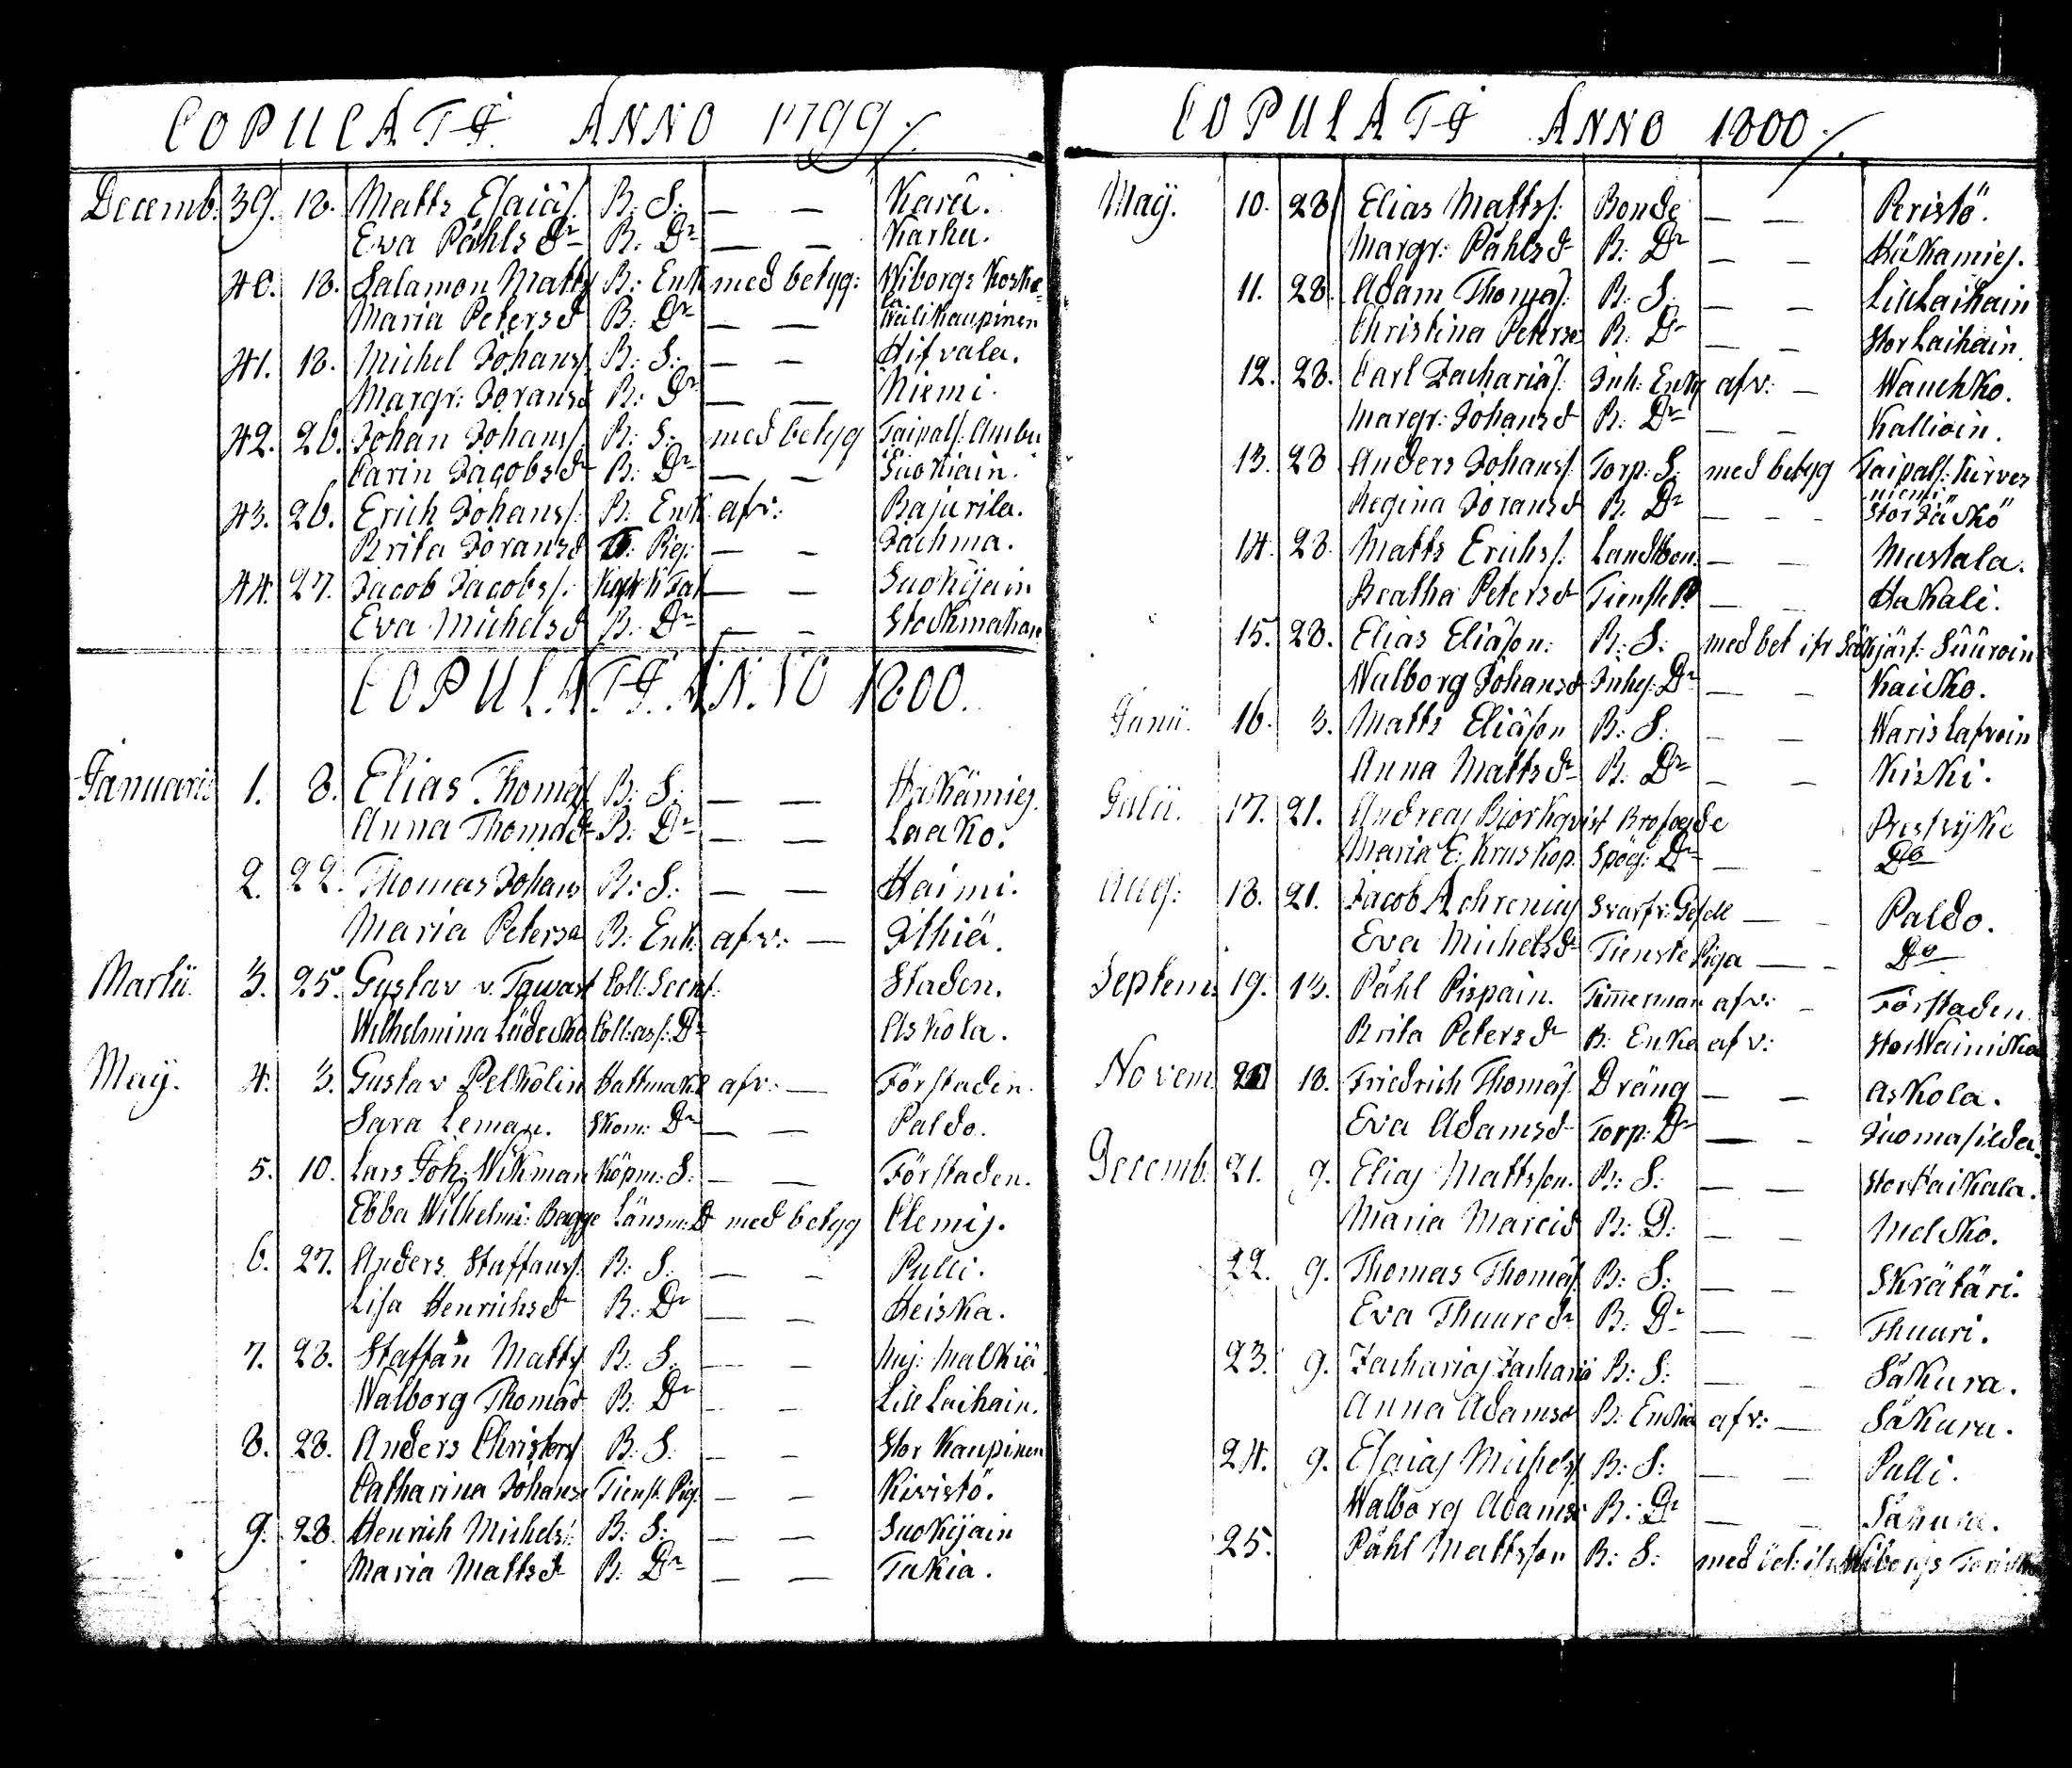 COPULATI ANNO 1799.
Decemb: 39. 18. Matts Esaiæs. B: S: — — Karu.
Eva Påhls dr B: Dr — — Karhu.
40. 18. Salamon Matts B: Enk med betyg: Wiborgs Koske=
la
Maria Petersd B: Dr — — Wälikaupinen
41. 18. Michel Johanss. B: S: — — Hifvala.
Margr: Joransd B: Dr — — Niemi.
42. 26. Johan Johanss. B: S: med betyg Taipals:
Carin Jacobsdr B: Dr — — Suokiain.
43. 26. Erich Johanss: B: Enk: afv: Rajurila.
Brita Joransd Pig: — — Jachma.
44. 27. Jacob Jacobss: — — Suokijain
Eva Michelsd B: Dr — —
COPULATI ANNO 1800.
Januarii 1. 8. Elias Thomæs B: S: — — Hakämies.
Anna Thomædr B: Dr — — Laako.
2. 22. Thomas Johans B: S: — — Haimi.
Maria Petersd B: Enk: afv: — Ithiä.
Martii 3. 25. Gustav v. Tawast Coll: Secret: Staden.
Wilhelmina Lüdecke Coll: ass: Dr Askola.
Maÿ. 4. 3. Gustav Pelkolin Hattmak: afv: — Förstaden.
Sara Leman. Skom: Dr — — Paldo.
5. 10. Lars Joh: Wikman Köpm: S: — — Förstaden.
Ebba Wilhelmi: Bagge Länsm: D med betyg Clemis.
6. 27. Anders Staffanss. B: S: — — Pulli.
Lisa Henrichsdr B: Dr — — Heiska.
7. 28. Staffan Matts B: S: — — Malkiä
Walborg Thomæd B: Dr — — Lill Laihain.
8. 28. Anders Christers B: S: — — Stor Kaupinen
Catharina Johansd Tienst: Pig: — — Kivistö.
9. 28. Henrich Michels: B: S: — — Suokijain
Maria Mattsdr B: Dr — — Takia.
COPULATI ANNO 1800.
Maÿ. 10. 28 Elias Matts: Bonde — — Peristö.
Margr: Påhlsd B: Dr — — Hükamies.
11. 28. Adam Thomæs: B: S: — — Lill Laihain
Christina Petersd B: Dr — — Stor Laihain.
12. 28. Carl Zachariæs: Inh: Enk afv: — Wauchko.
Margr: Johansd B: Dr — — Kallioin.
13. 28 Anders Johans: Torp: S: med betyg Taipals: Kirves
niemi
Regina Joransd B. Dr — — Stor Jäskö
14. 28. Matts Erichs: Landtbon: — — Mustala.
Beatha Petersd Tienste P: — — Hakali.
15. 28. Elias Eliæson: B: S: med bet ifr Süüroin
Walborg Johansd Inhys: Dr — — Kaisko.
Junii. 16. 3. Matts Eliæson B: S: — —
Anna Mattsdr B: Dr — — Kiski.
Julii. 17. 21. Andreas Biorkqvist Brofogde
Maria E: Kruskop. Spög: Dr — Do
Aug: 18. 21. Jacob Ahrenius Svarfv: Gesell — — Paldo.
Eva Michelsdr Tienste Piga — — Do
Septem: 19. 13. Påhl Pispain. Timmerman afv: — Förstaden
Brita Petersdr B: Enka afv: Stor Wainikka
Novem 18. Friedrich Thomæs: Dräng — — Askola.
Eva Adamsd Torp: Dr — —
Decemb: 21. 9. Elias Mattsson. B: S: — — Stor Haikala.
Maria Marcid B: D: — — Melsko.
22. 9. Thomas Thomæs: B: S: — — Skrätäri.
Eva Thuuredr B: Dr — — Thuuri.
23. 9. Zacharias Zachariæ B: S: — — Säkura.
Anna Adamsd B: Enka afv: — Säkura.
24. 9. Esaias Michels: B: S: — — Pulli.
Walborg Adamsd B: Dr — — Säkura.
25. Påhl Mattsson B: S: med bet: ifr Wiborgs